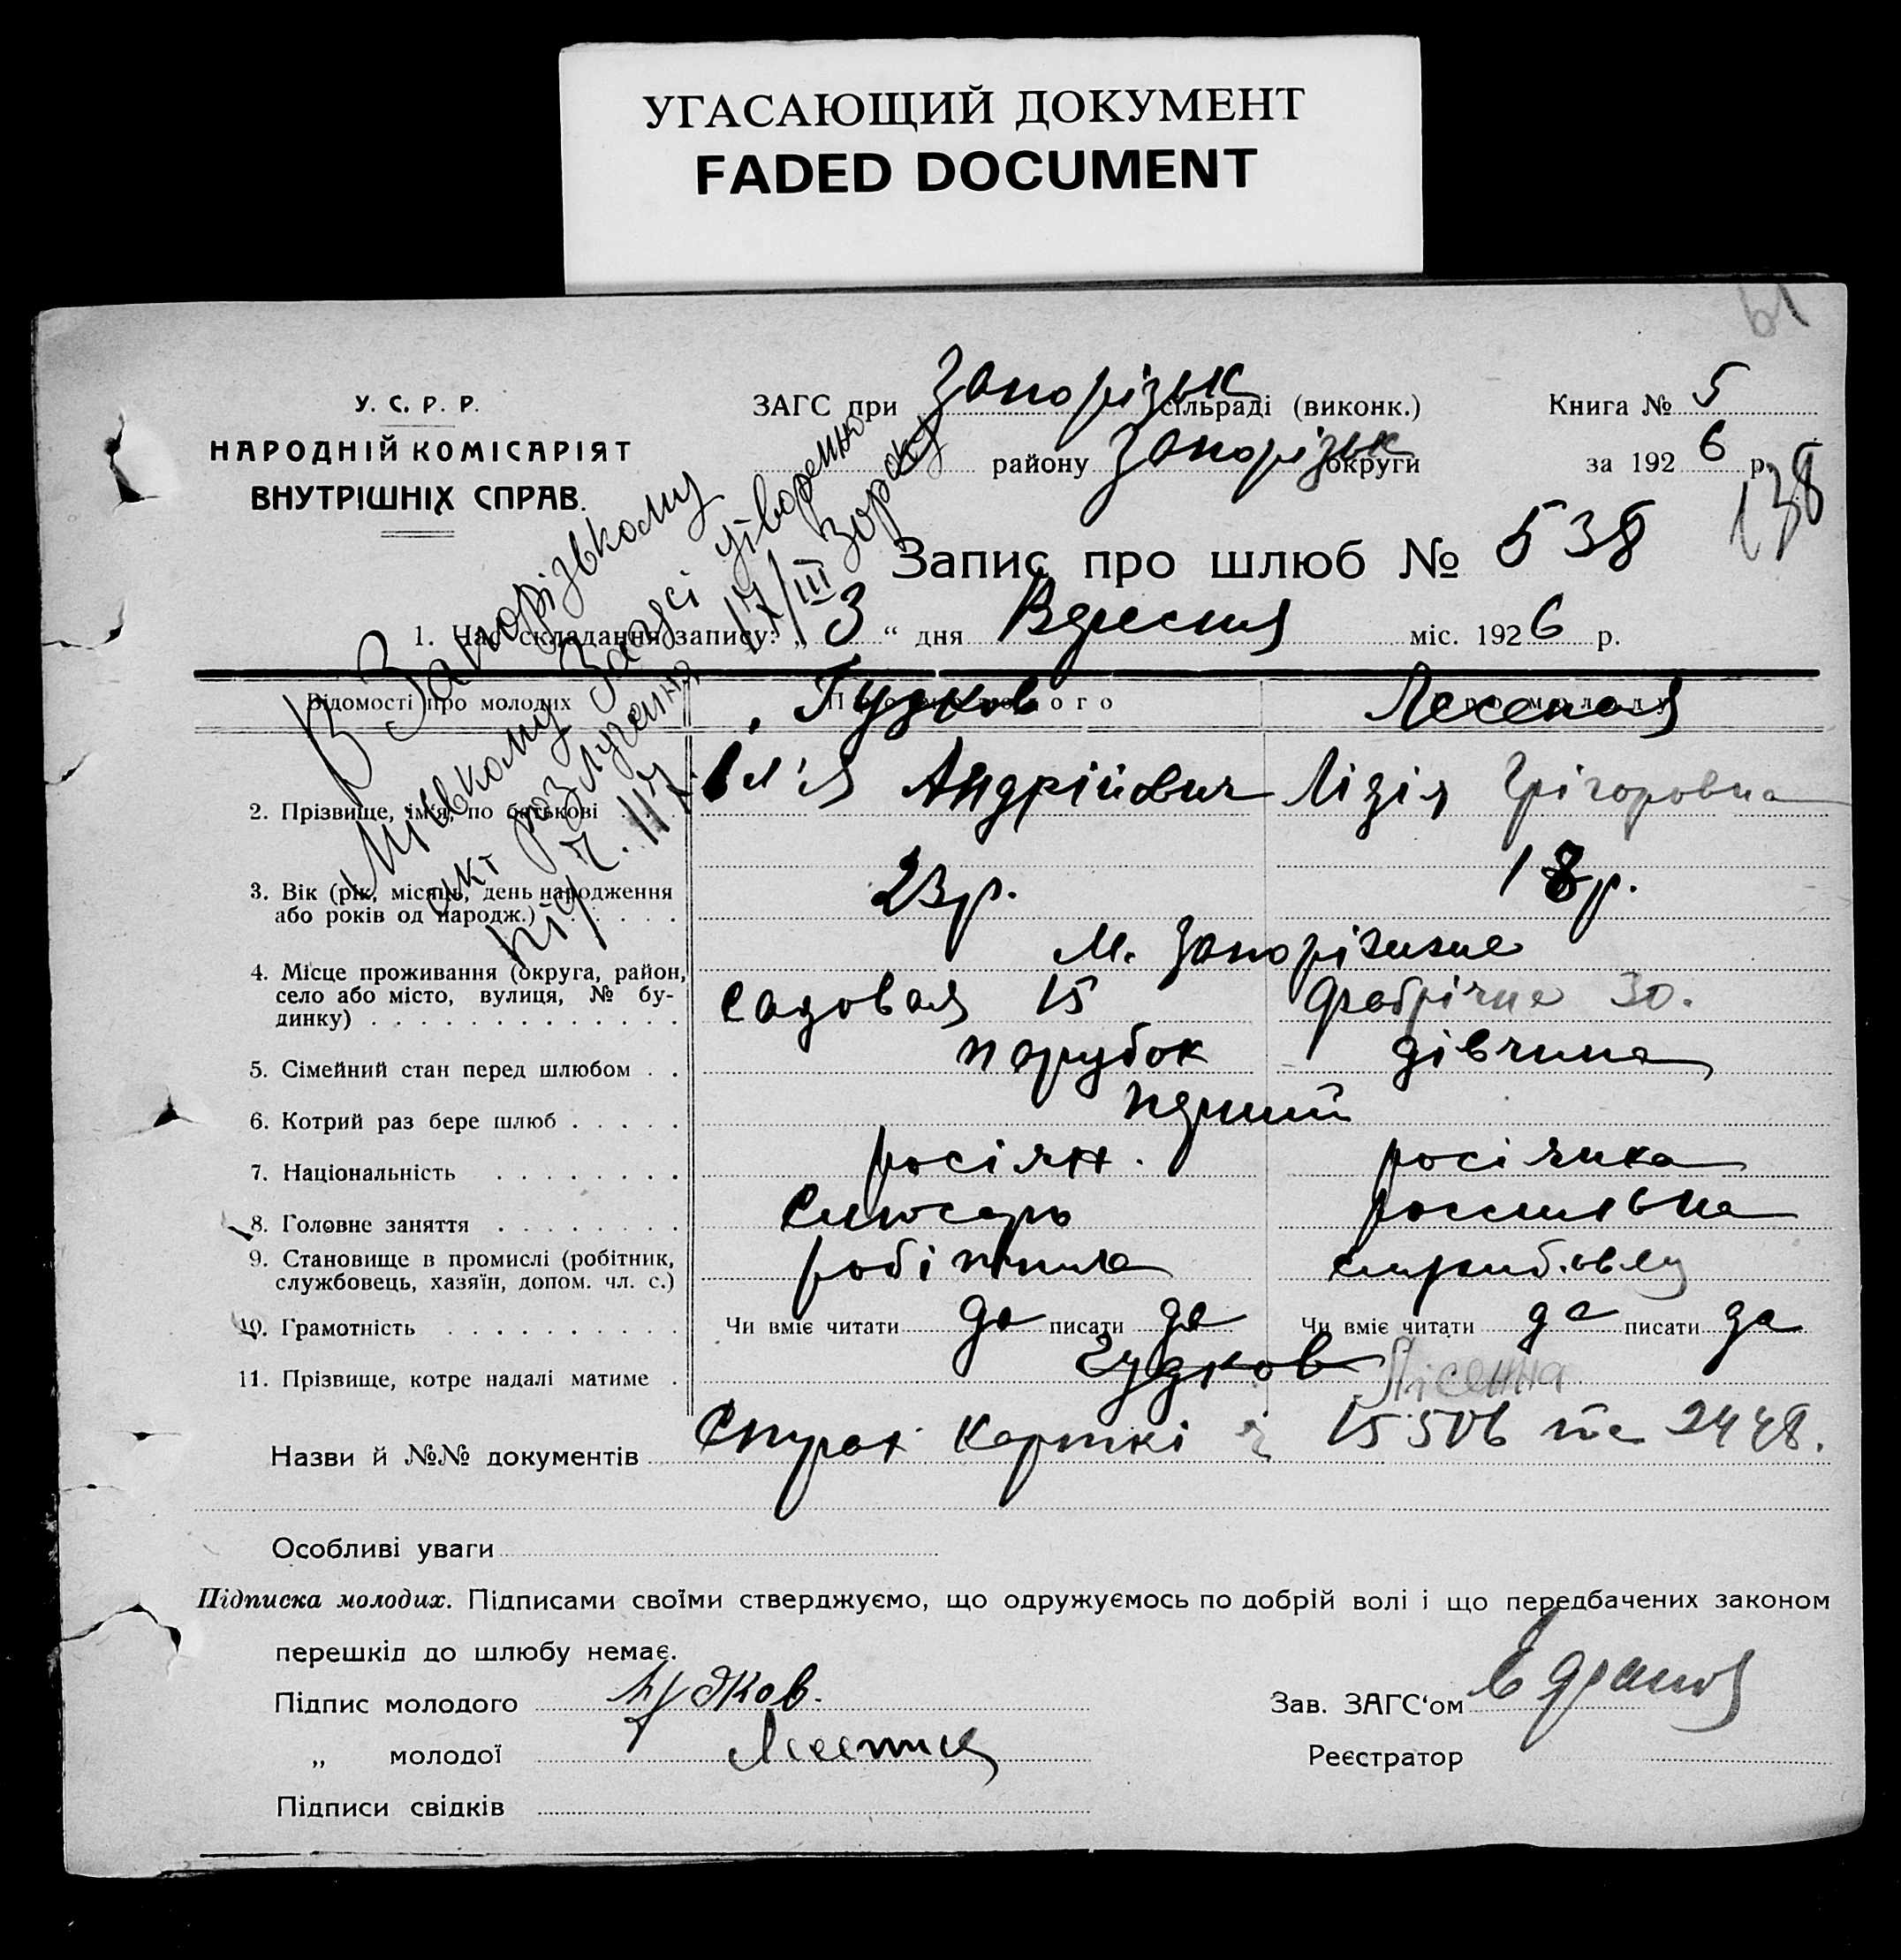 УГАСАЮЩИЙ ДОКУМЕНТ
FADED DOCUMENT
61
У. С. Р. Р.
НАРОДНІЙ КОМІСАРІЯТ
ВНУТРІШНІХ СПРАВ.
ЗАГС при Запорізьк сільраді (виконк.)
району Запорізьк округи
Книга № 5
за 1926 р.
138
Запис про шлюб № 538
1. Час складання запису: „3“ дня Вересня міс. 1926 р.
В Запорізькому
Міському Загсі утворено
акт розлучення 17/III
під ч. 117.
Відомості про молодих
Гудков
2. Прізвище, ім'я, по батькові Ілʼя Андрійович Лідія Грігоровна
3. Вік (рік, місяць, день народження
або років од народж.) 23 р. 18 р.
4. Місце проживання (округа, район,
село або місто, вулиця, № бу-
динку)
м. Запоріжжє
Садовая 15 Фабрічна 30.
5. Сімейний стан перед шлюбом парубок дівчина
6. Котрий раз бере шлюб перший
7. Національність росіян. росіянка
8. Головне заняття Слюсарь
9. Становище в промислі (робітник,
службовець, хазяїн, допом. чл. с.) робітника
10. Грамотність Чи вміє читати да писати да Чи вміє читати да писати да
11. Прізвище, котре надалі матиме Гудков
Назви й №№ документів карткі ч 15506 та 2448.
Особливі уваги
Підписка молодих. Підписами своїми стверджуємо, що одружуємось по добрій волі і що передбачених законом
перешкід до шлюбу немає.
Підпис молодого Гудков.
„ молодої
Підписи свідків
Зав. ЗАГС'ом
Реєстратор